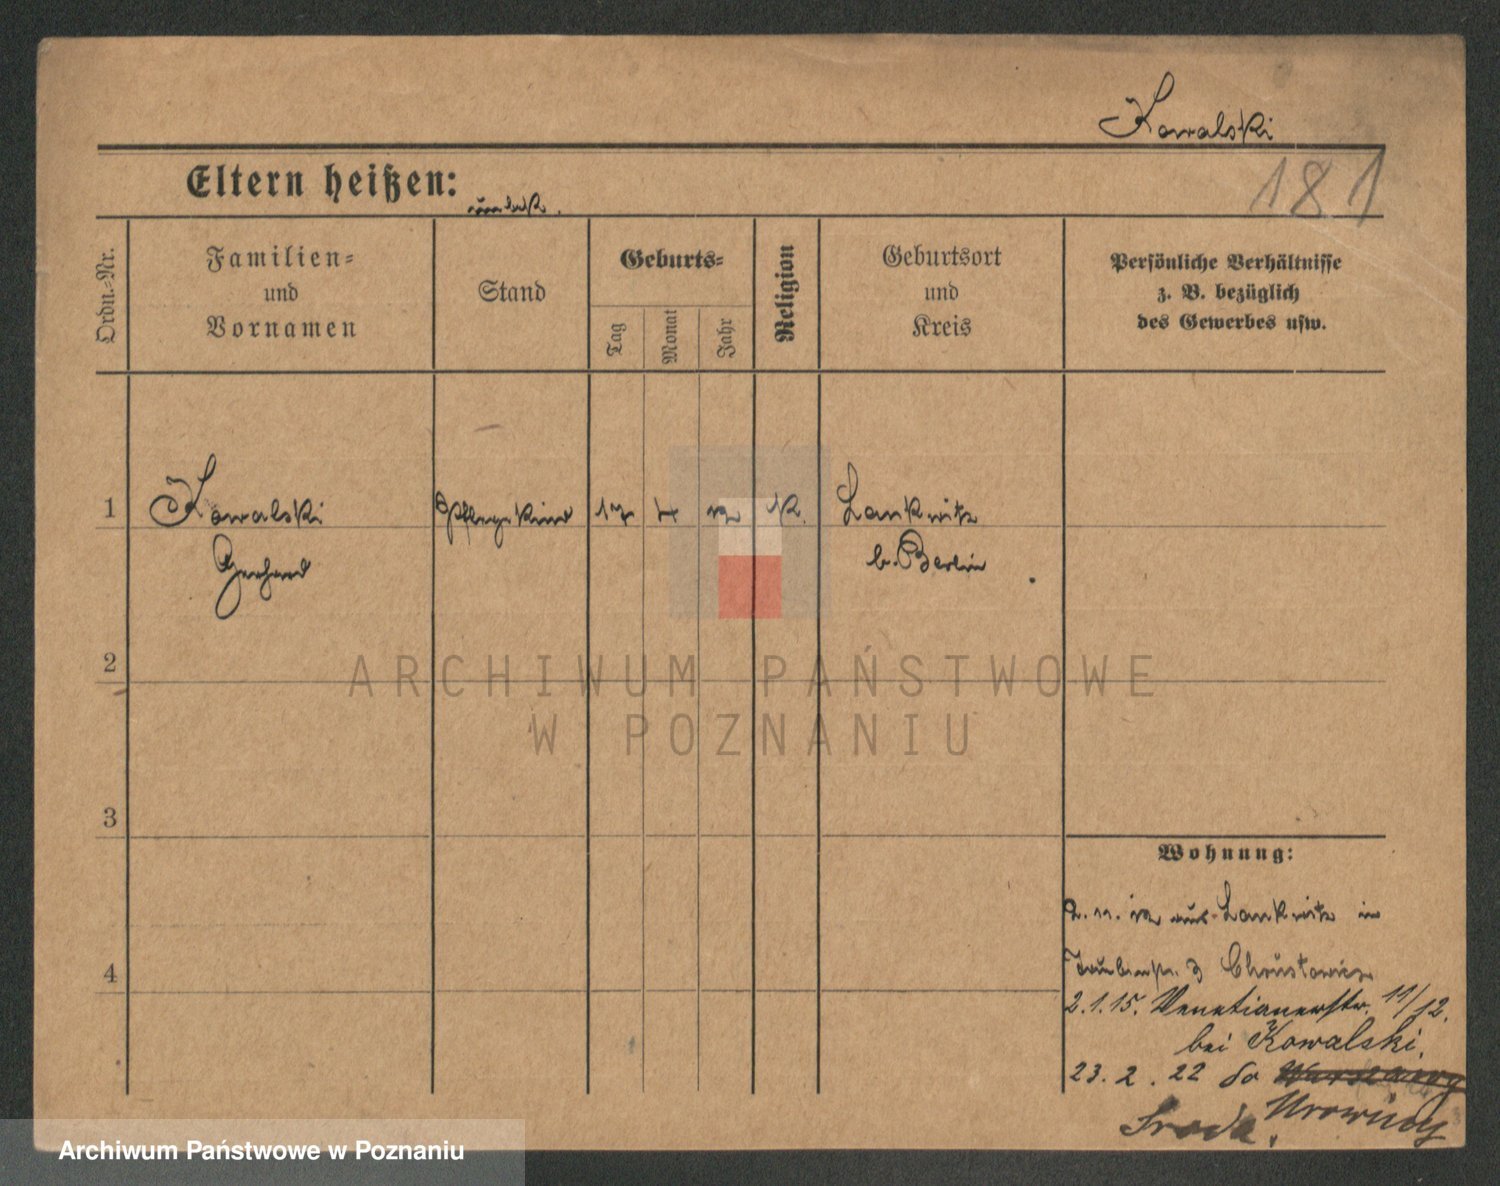 Kowalski
181
Eltern heißen:
Ordn.=Nr.
Familien=
und
Vornamen
Stand
Geburts=
Tag
Monat
Jahr
Religion
Geburtsort
und
Kreis
Persönliche Verhältnisse
z. B. bezüglich
des Gewerbes usw.
1
Kowalski
Pflegekind
17
4
K.
Lankwitz
Gerhard
b. Berlin
2
ARCHIWUM PAŃSTWOWE
W POZNANIU
3
Wohnung:
aus Lankwitz in
4
3
2.1.15. Venetianerstr. 11/12.
bei Kowalski.
23.2.22 do
Środa.
Archiwum Państwowe w Poznaniu